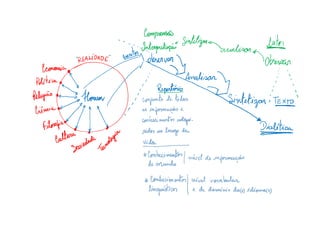 Compreensão
Interpretação
Sintetizar
analisar
Leitor
Observar
REALIDADE
leitor
observar
Analisar
Sintetizar - TEXTO
Dialética
Economia
Política
Religião
Ciência
Filosofia
Cultura
Sociedade
Tecnologia
Homem
Repertório
conjunto de todas
as informações e
conhecimentos adqui-
ridos ao longo da
vida
* Conhecimentos nível de informação
de mundo
* Conhecimentos nível vocabular
linguísticos e de domínio do(s) idioma(s)